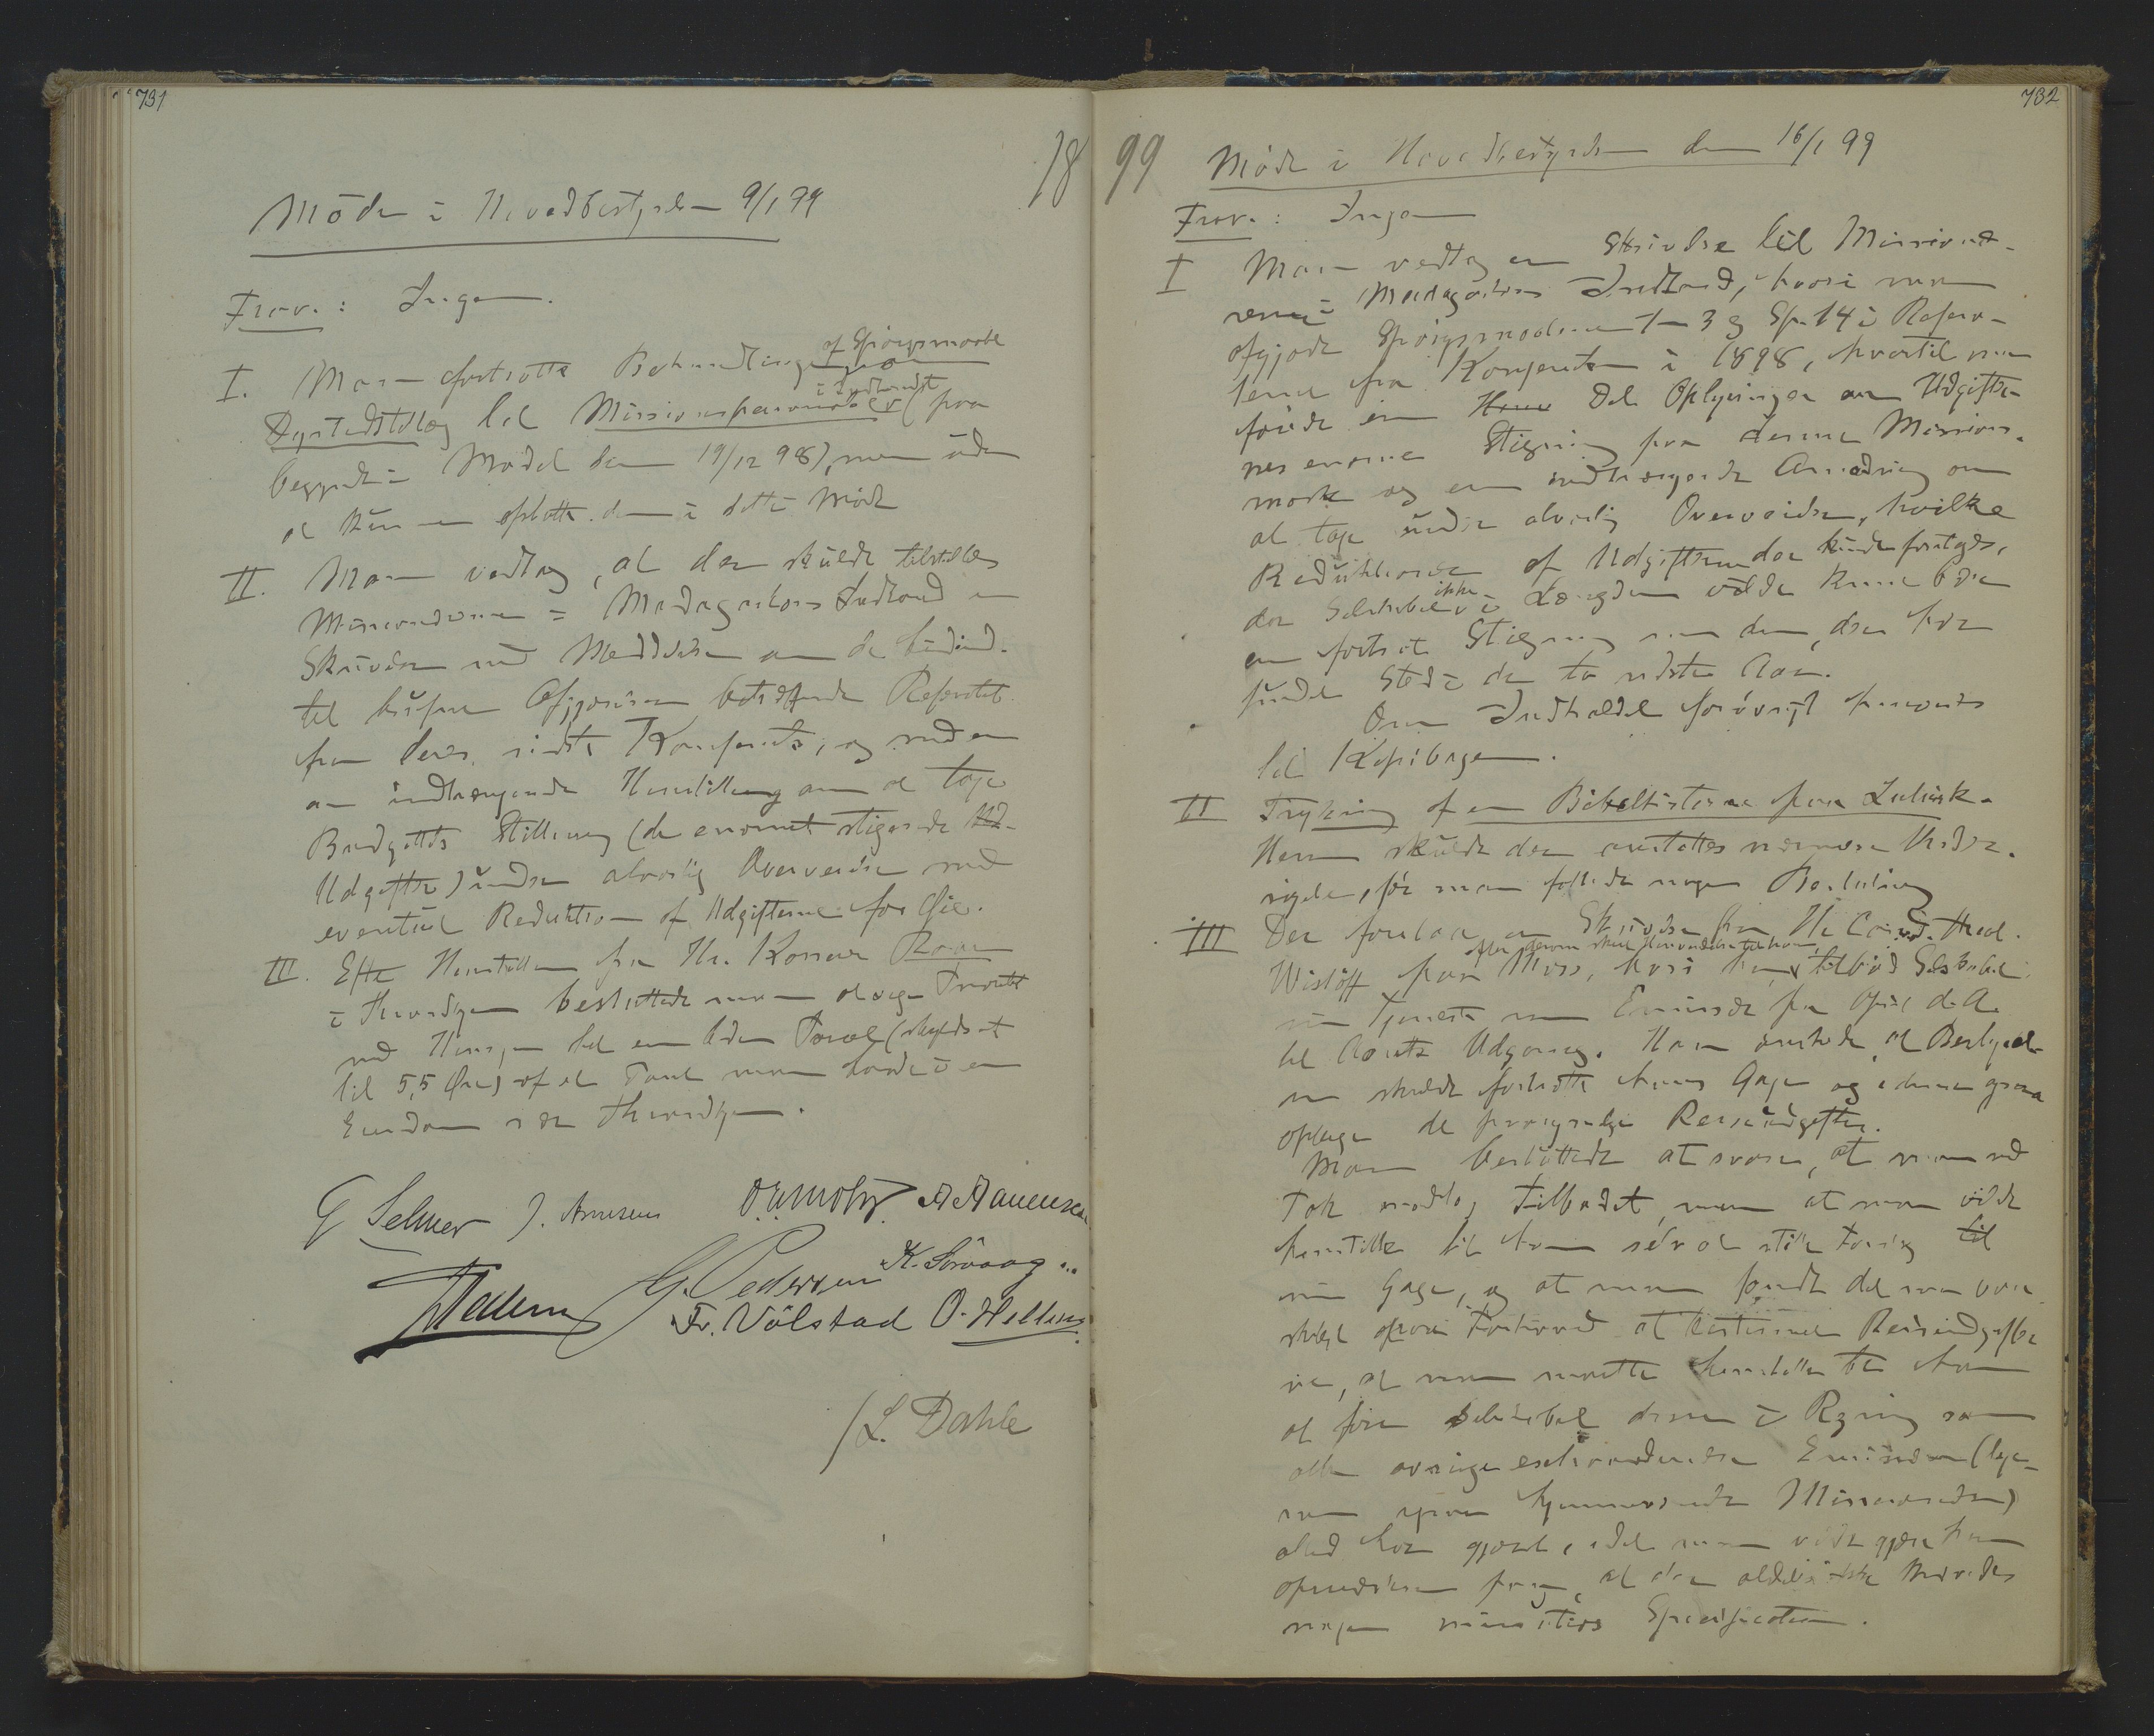 731
18
Möde i Hovedbestyrelsen 9/1 99
Frav.: Ingen.
I. Man fortsatte Behandlingen af Spörgsmaalet om
Dyrtidstillæg til Missionspersonalet i Indlandet (paa
begyndt i Mödet den 19/12 98), men uden
at kunne afslutte den i dette Möde
II. Man vedtog, at der skulde tilstilles
Missionærerne i Madagaskars Indland en
Skrivelse med Meddelelse om de
til Afgjörelser betræffende Referatet
fra deres sidste Konferents, og med en
indtrængende Henstilling om at tage
Budgettets Stilling (de enormt stigende Ud-
Udgifter) under alvorlig Overveielse med
eventuel Reduktion af Udgifterne for Öie.
III. Efter Henstillen fra Hr.
i Throndhjem besluttede man at
med Hensyn til en liden Parcel (skyldsat
til 5,5 Öre) af et man havde i en
Eiendom ved Throndhjem.
G Selmer J. Arnesen A Aanensen
G. Pedersen K. Sövaag
Fr. Völstad O. Helleren
/L. Dahle
732
99
Möde i Hovedbestyrelsen den 16/1 99
Frav.: Ingen
I Man vedtog en Skrivelse til Missionæ-
rerne i Madagaskars Indland, hvori man
afgjorde Spörgsmaalene 1-3 og Sp. 14 i Refera-
terne fra Konferentsen i 1898, hvortil man
föiede en Del Oplysninger om Udgifter-
nes enorme Stigning paa denne Missions-
mark og en indtrængende Anmodning om
at tage under alvorlig Overveielse, hvilke
Reduktioner af Udgifterne der kunde foretages,
da Selskabet ikke i Længden vilde kunne bære
en fortsat Stigning som den, der har
fundet Sted i de to sidste Aar.
Om Indholdet forövrigt henvises
til Kopibogen.
II Trykning af en Bibelhistorie paa Zulusk.
Herom skulde der anstilles nærmere Under-
sögelse, för man fattede nogen Beslutning
III Der forelaa en Skrivelse fra Hr. Cand. theol.
Wislöff fra Moss, hvori han tilböd Selskabet
sin Tjeneste som Emissær fra April d. A.
til Aarets Udgang. Han önskede, at Bestyrel-
sen skulde fastsætte hans Gage og i denne
de Reiseudgifter.
Man besluttede at svare, at man med
Tak modtog Tilbudet, men at man vilde
henstille til ham selv at stille Forslag til
sin Gage, og at man fandt det
paa Forhaand at bestemme Reiseudgifter
ne, at man maatte henstille til ham
at före Selskabet disse i Regning som
alle övrige extraordinære Emissærer (lige-
som hjemmeværende Missionærer)
altid har gjort, idet man vilde gjöre ham
opmærksom paa, at der aldeles ikke krævedes
nogen minutiös Specification.